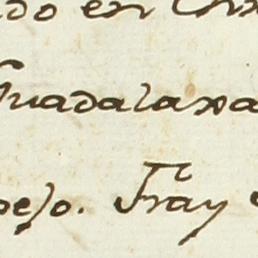 do en
Guadalaxa
pejo. Fray